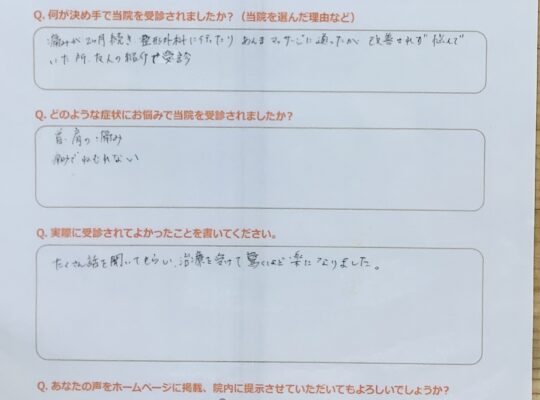 Q. 何が決め手で当院を受診されましたか？（当院を選んだ理由など）
痛みが2ヶ月続き 整形外科に行ったり あんまマッサージに通ったが 改善されず 悩んで
いた所、友人の紹介で受診
Q. どのような症状にお悩みで当院を受診されましたか？
首・肩の痛み
痛みでねむれない
Q. 実際に受診されてよかったことを書いてください。
たくさん話を聞いてもらい、治療を受けて驚くほど楽になりました。
Q. あなたの声をホームページに掲載、院内に提示させていただいてもよろしいでしょうか？